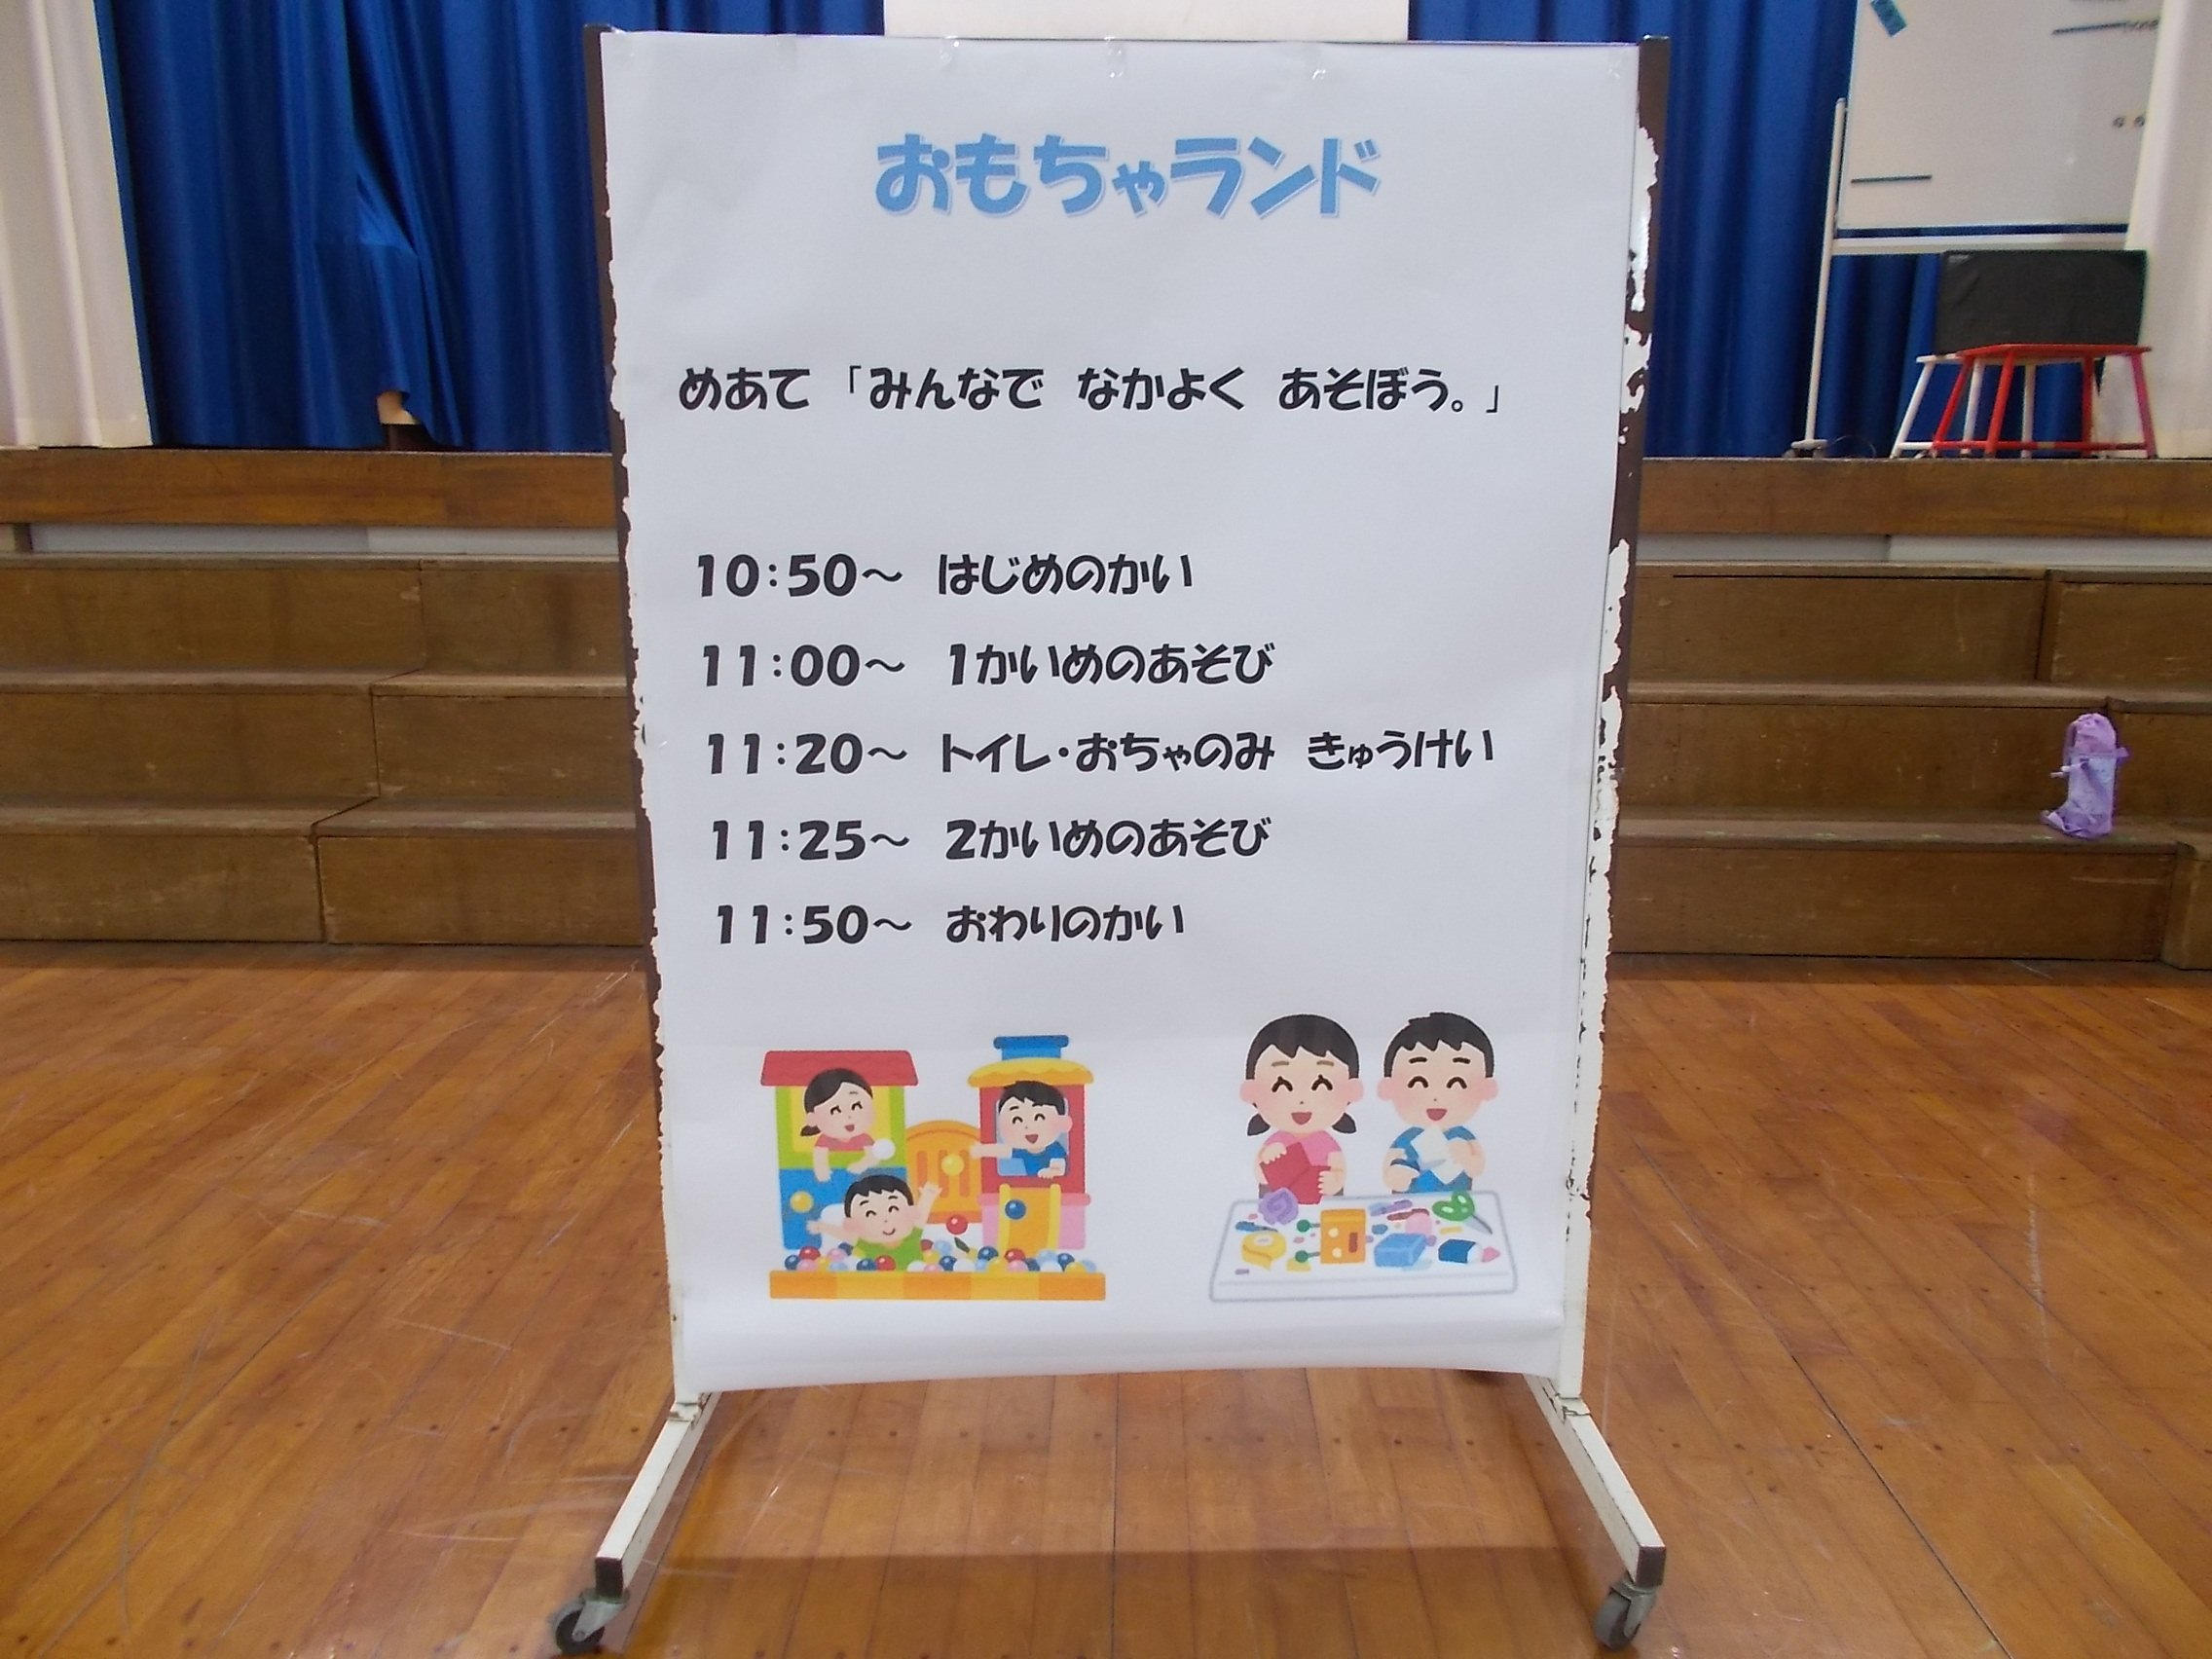 おもちゃランド
めあて「みんなで なかよく あそぼう。」
10:50～ はじめのかい
11:00～ 1かいめのあそび
11:20～ トイレ・おちゃのみ きゅうけい
11:25～ 2かいめのあそび
11:50～ おわりのかい